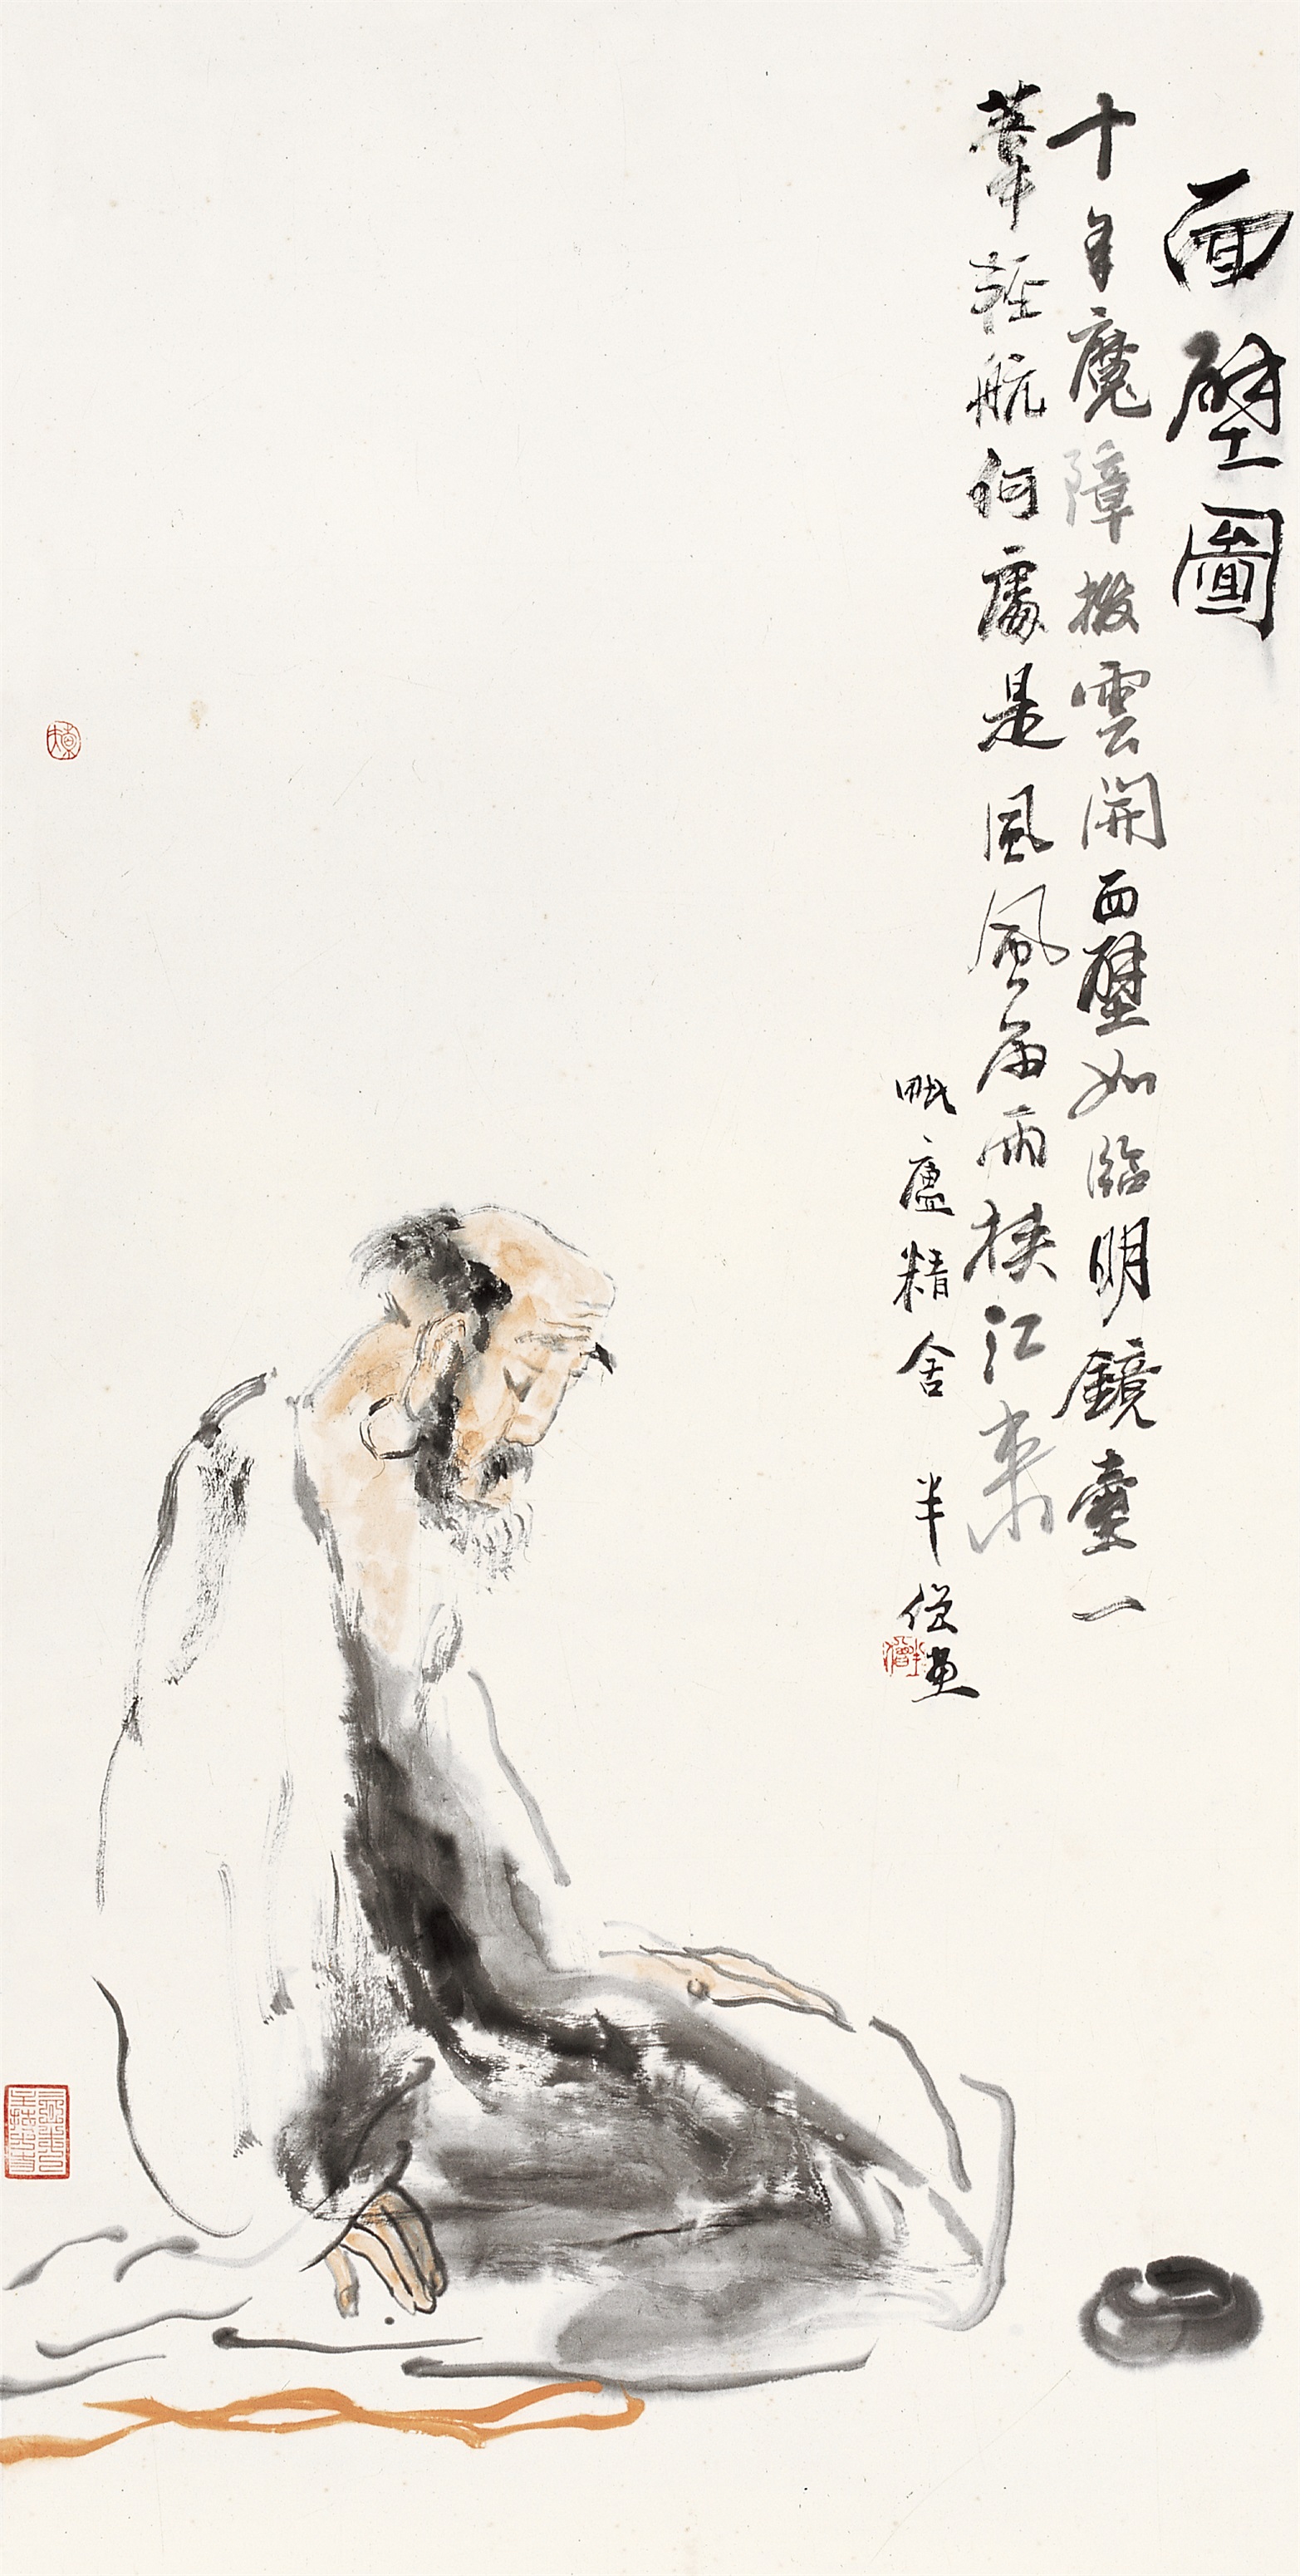 面壁圖
十年魔障撥雲開面壁如臨明鏡臺一
葦輕航何處是風風雨雨挾江來
毗廬精舍 半僧畫
半僧